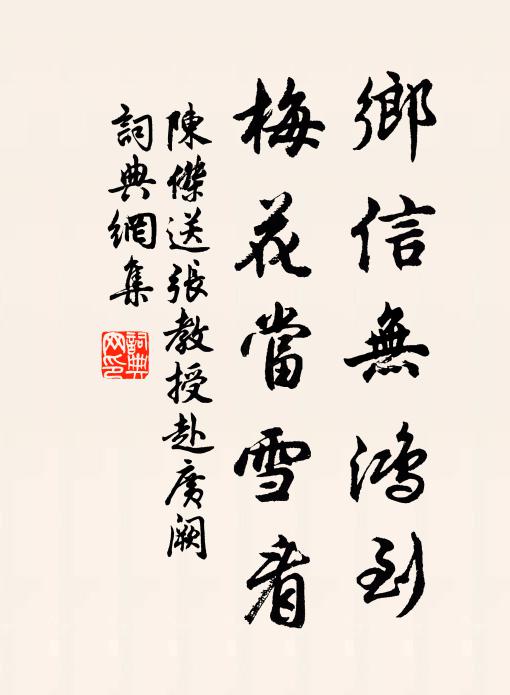 鄉信無鴻到
梅花當雪看
陳傑送張教授赴廣闕
詞典網集
詞典網印